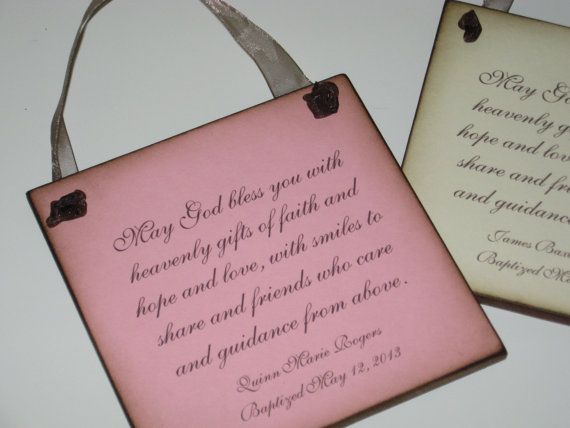 May God bless you with
heavenly gifts of faith and
hope and love, with smiles to
share and friends who care
and guidance from above.
Quinn Marie Rogers
Baptized May 12, 2013
May God
heavenly
hope and love
share and
and guidance
James
Baptized